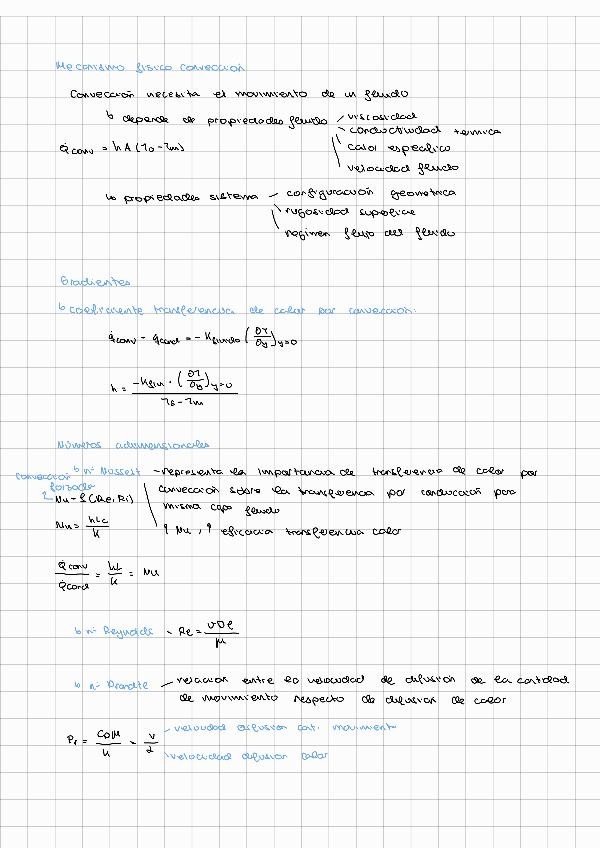 Mecanismo físico convección
Convección necesita el movimiento de un fluido
↳ depende de propiedades fluido - viscosidad
- conductividad térmica
Q̇conv = hA(Ts - T∞)
\ calor específico
\ velocidad fluido
↳ propiedades sistema - configuración geométrica
\ rugosidad superficie
\ régimen flujo del fluido
Gradientes
↳ coeficiente transferencia de calor por convección:
q̇conv = q̇cond = -Kfluido (∂T/∂y)y=0
h = -Kflu · (∂T/∂y)y=0 / Ts - T∞
Números adimensionales
↳ nº Nusselt - representa la importancia de transferencia de calor por
convección forzada
convección sobre la transferencia por conducción para
Nu = f(Re, Pr)
misma capa fluido
Nu = hLc/k
↑ Nu, ↑ eficacia transferencia calor
Q̇conv/Q̇cond = hL/k = Nu
↳ nº Reynolds - Re = vDρ/μ
↳ nº Prandtl - relación entre la velocidad de difusión de la cantidad
de movimiento respecto de difusión de calor
- velocidad difusión cant. movimiento
Pr = Cpμ/k = ν/α
\ velocidad difusión calor